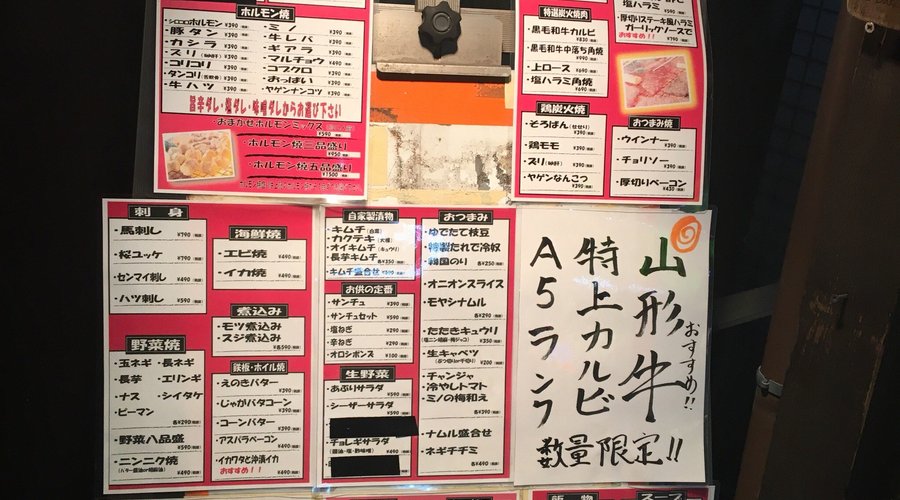 ホルモン焼
・シロコロホルモン ¥390
・豚タン ¥390
・カシラ ¥390
・ズリ(砂肝) ¥390
・コリコリ ¥390
・タンコリ ¥390
・牛ハツ
・ミノ ¥390
・牛レバ ¥390
・ギアラ ¥390
・マルチョウ
・コブクロ
・おっぱい
・ヤゲンナンコツ
旨辛ダレ・塩ダレ・味噌ダレからお選び下さい
・おまかせホルモンミックス
¥590
・ホルモン焼三品盛り
¥950
・ホルモン焼五品盛り
¥1500
特選炭火焼肉
・黒毛和牛カルビ
¥830
・黒毛和牛中落ち角焼
¥990
・上ロース ¥690
・塩ハラミ角焼
¥690
塩ハラミ
・厚切りステーキ風ハラミ
ガーリックソースで
おすすめ!! ¥790
鶏炭火焼
・そろばん(せせり)
¥390
・鶏モモ ¥390
・ズリ(砂肝) ¥390
・ヤゲンなんこつ
¥390
おつまみ焼
・ウインナー ¥390
・チョリソー ¥390
・厚切りベーコン
¥430
刺身
・馬刺し ¥790
・桜ユッケ ¥790
・センマイ刺し ¥490
・ハツ刺し ¥590
野菜焼
・玉ネギ ・長ネギ
・長芋 ・エリンギ
・ナス ・シイタケ
・ピーマン
各¥290
・野菜八品盛 ¥590
・ニンニク焼 ¥490
海鮮焼
・エビ焼 ¥490
・イカ焼 ¥490
煮込み
・モツ煮込み
・スジ煮込み
各¥590
鉄板・ホイル焼
・えのきバター ¥390
・じゃがバタコーン ¥390
・コーンバター ¥390
・アスパラベーコン ¥490
・イカワタと沖漬イカ
おすすめ!! ¥490
自家製漬物
・キムチ(白菜)
・カクテキ(大根)
・オイキムチ(キュウリ)
・長芋キムチ
各¥350
・キムチ盛合せ ¥590
お供の定番
・サンチュ ¥390
・サンチュセット ¥590
・塩ねぎ ¥290
・辛ねぎ ¥290
・オロシポンズ ¥100
生野菜
・あぶりサラダ ¥590
・シーザーサラダ ¥590
・チョレギサラダ
おつまみ
・ゆでたて枝豆
・特製だれで冷奴
・韓国のり 各¥250
・オニオンスライス
・モヤシナムル
各¥290
・たたきキュウリ
¥350
・生キャベツ
¥200
・チャンジャ
・冷やしトマト
・ミノの梅和え
各¥390
・ナムル盛合せ
・ネギチヂミ
各¥490
山形牛
おすすめ!!
特上カルビ
A5ランク
数量限定!!
飯物
スープ